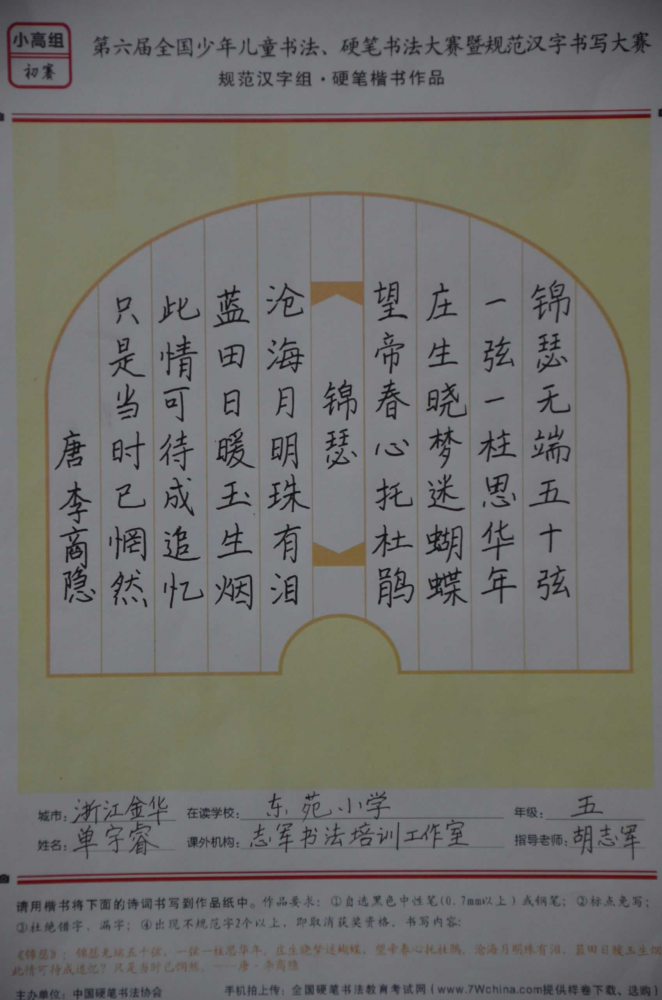 小高组
初赛
第六届全国少年儿童书法、硬笔书法大赛暨规范汉字书写大赛
规范汉字组·硬笔楷书作品
锦瑟无端五十弦
一弦一柱思华年
庄生晓梦迷蝴蝶
望帝春心托杜鹃
锦瑟
沧海月明珠有泪
蓝田日暖玉生烟
此情可待成追忆
只是当时已惘然
唐 李商隐
城市：浙江金华 在读学校：东苑小学 年级：五
姓名：单宇睿 课外机构：志军书法培训工作室 指导老师：胡志军
请用楷书将下面的诗词书写到作品纸中。作品要求：①自选黑色中性笔(0.7mm以上)或钢笔；②标点免写；
③杜绝错字、漏字；④出现不规范字2个以上，即取消获奖资格。书写内容：
《锦瑟》：锦瑟无端五十弦，一弦一柱思华年。庄生晓梦迷蝴蝶，望帝春心托杜鹃。沧海月明珠有泪，蓝田日暖玉生烟
此情可待成追忆？只是当时已惘然。——唐·李商隐
主办单位：中国硬笔书法协会 手机拍上传：全国硬笔书法教育考试网（www.7Wchina.com提供样卷下载、选购）